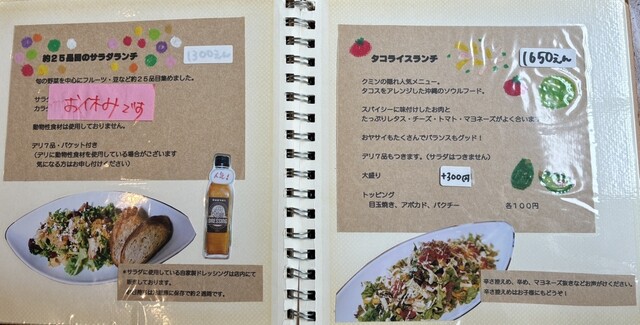 約25品目のサラダランチ
1300えん
旬の野菜を中心にフルーツ・豆など約25品目集めました。
サラダ
カラダ
お休みです
動物性食材は使用しておりません。
デリ7品・バケット付き
(デリに動物性食材を使用している場合がございます
気になる方はお申し付けください)
人気!
*サラダに使用している自家製ドレッシングは店内にて
販売しております。
冷蔵保存で約2週間です。
タコライスランチ
1650えん
クミンの隠れ人気メニュー。
タコスをアレンジした沖縄のソウルフード。
スパイシーに味付けしたお肉と
たっぷりレタス・チーズ・トマト・マヨネーズがよく合います
おヤサイもたくさんでバランスもグッド!
デリ7品もつきます。(サラダはつきません)
大盛り
+300円
トッピング
目玉焼き、アボカド、パクチー 各100円
辛さ控えめ、辛め、マヨネーズ抜きなどお声がけください。
辛さ控えめはお子様にもどうぞ!